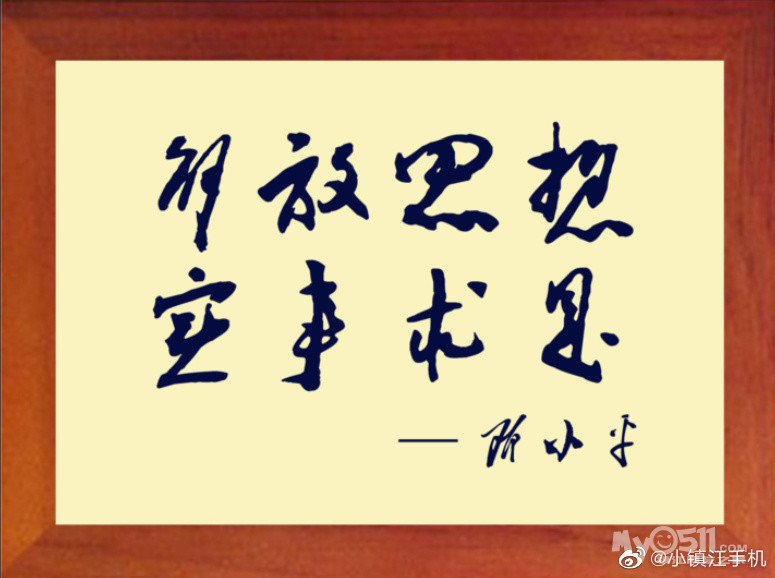 解放思想
实事求是
——邓小平
My0511.COM
@小镇江手机